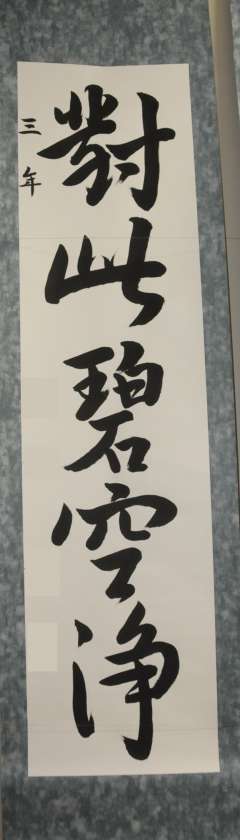 對此碧空浄
三年